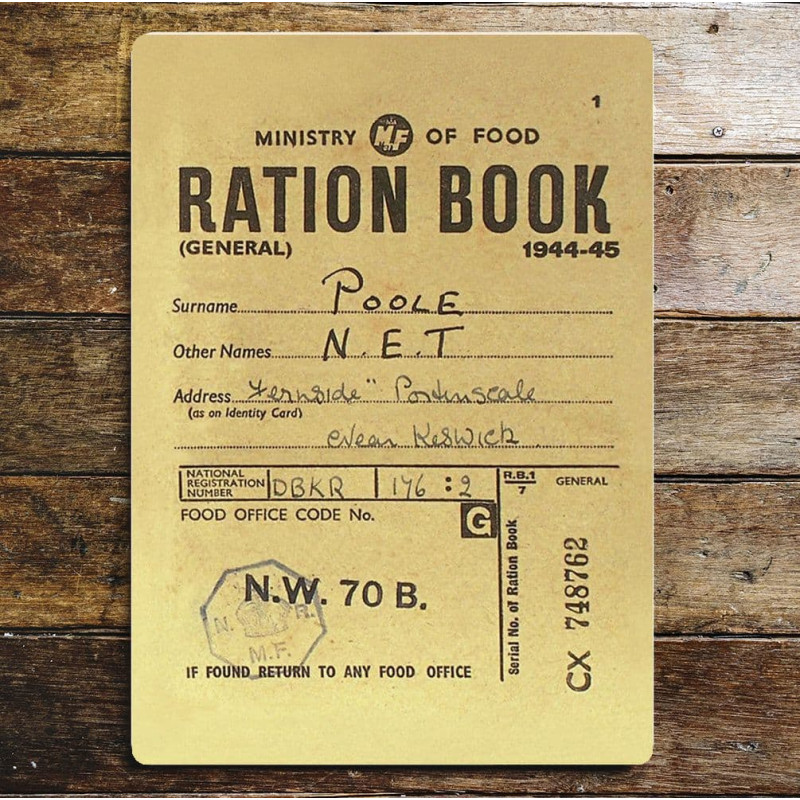 1
MINISTRY MF OF FOOD
RATION BOOK
(GENERAL) 1944-45
Surname POOLE
Other Names N.E.T
Address "Fernside" Portinscale
(as on Identity Card)
Near Keswick
NATIONAL REGISTRATION NUMBER DBKR 176 : 2
R.B.1
7
GENERAL
FOOD OFFICE CODE No.
G
N.W. 70 B.
N. R.
M.F.
IF FOUND RETURN TO ANY FOOD OFFICE
Serial No. of Ration Book
CX 748762